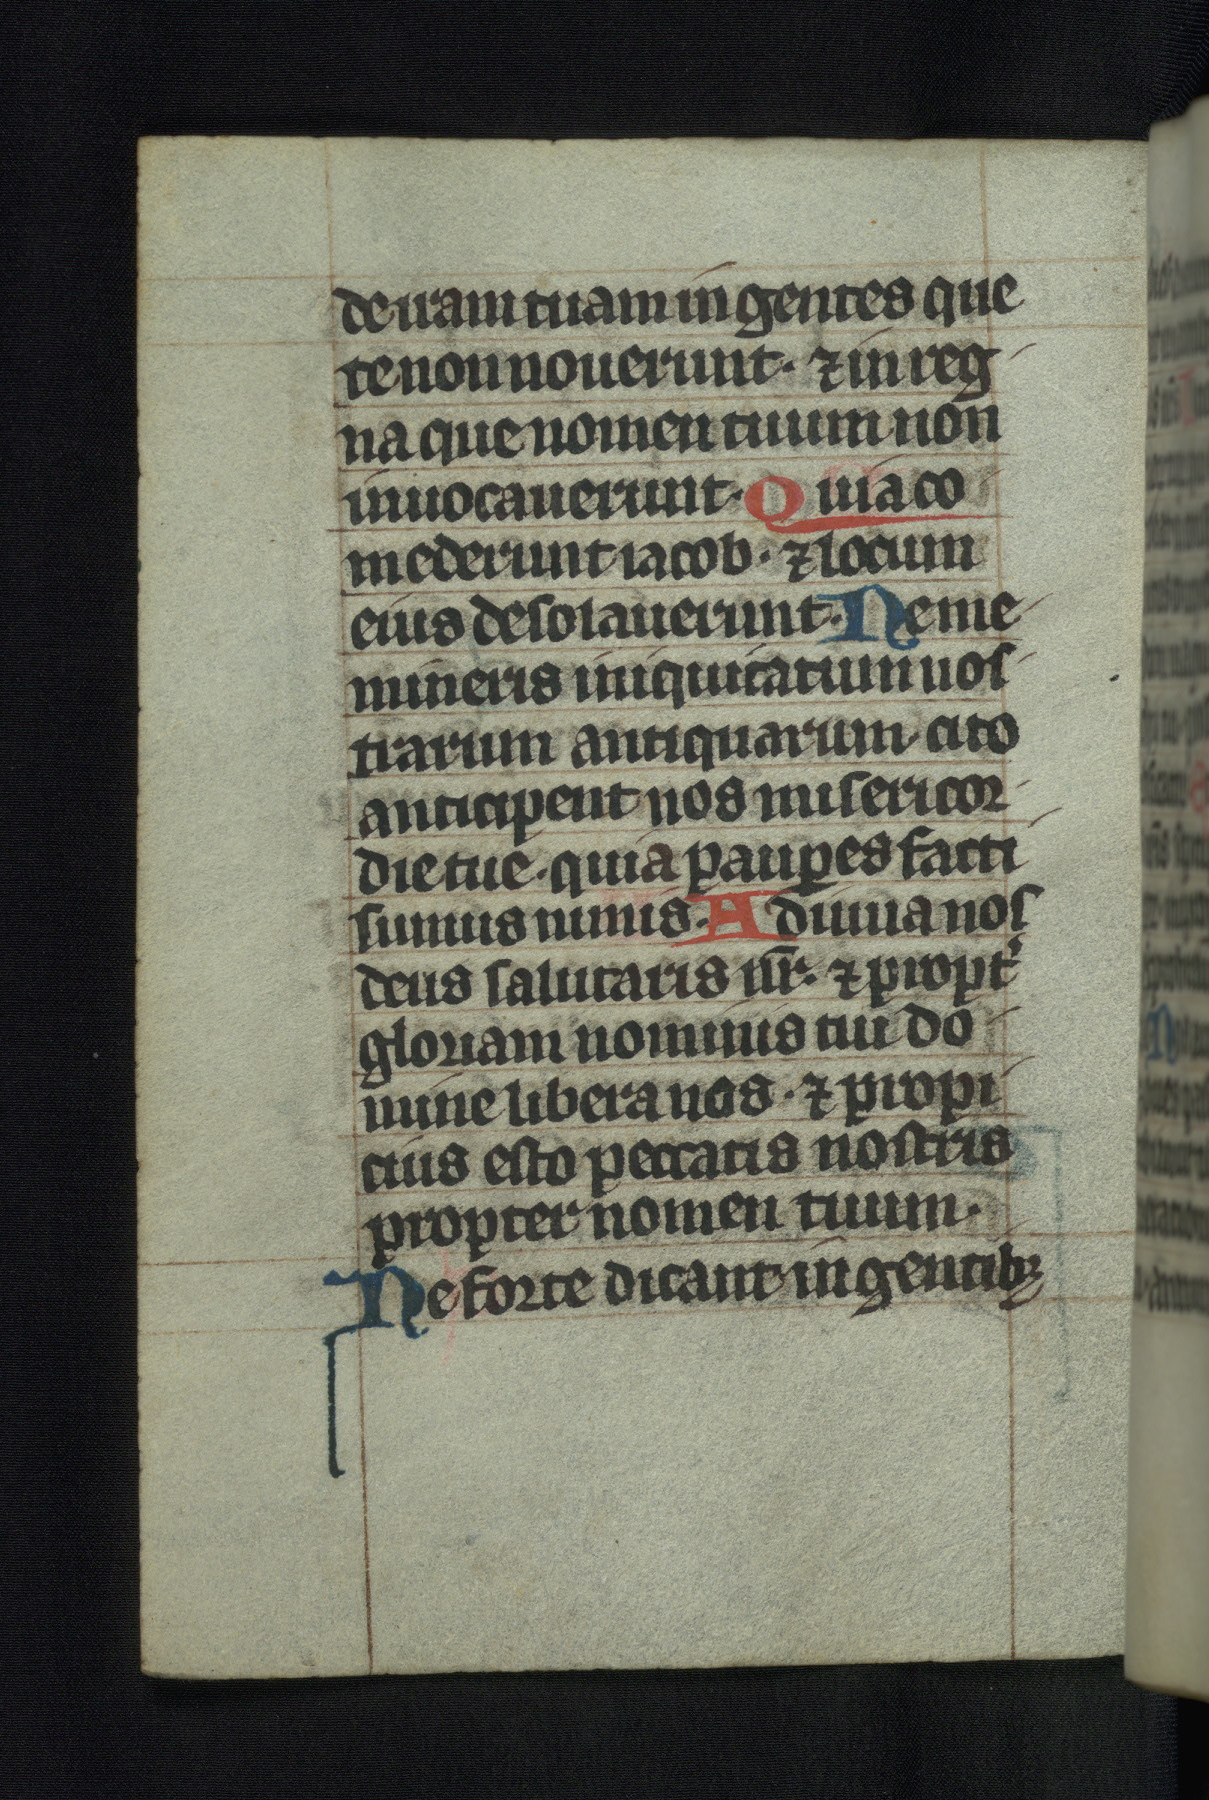 de iram tuam in gentes que
te non nouerunt· ⁊ in reg
na que nomen tuum non
inuocauerunt· Quia co
mederunt iacob· ⁊ locum
eius desolauerunt· Ne me
mineris iniquitatum nos
trarum antiquarum cito
anticipent nos misericor
die tue· quia pauꝑes facti
sumus nimis· Adiuua nos
deus salutaris nr̄· ⁊ propt᷑
gloriam nominis tui do
mine libera nos· ⁊ propi
cius esto peccatis nostris
propter nomen tuum·
Ne forte dicant in gentibꝫ